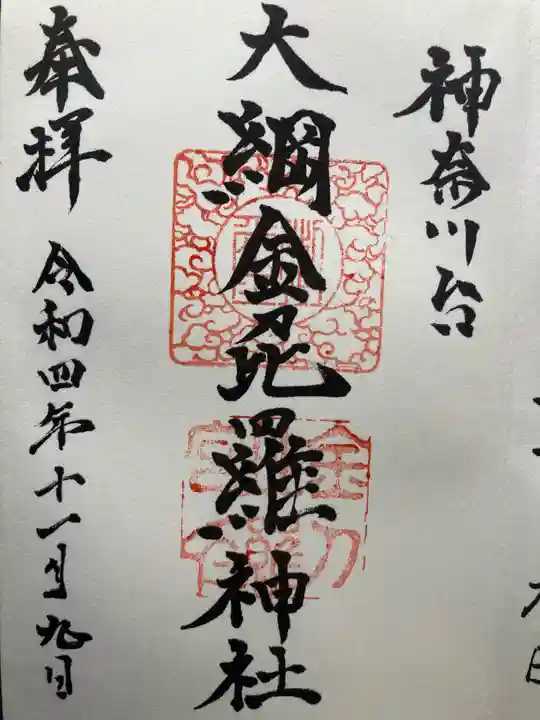 神奈川台
大綱金刀比羅神社
奉拝
令和四年十一月九日